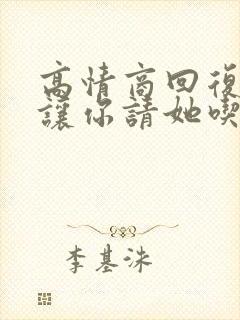 高情商回復
讓你請她喫
李基洙